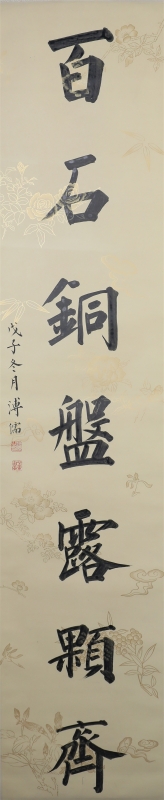 百石銅盤露顆齊
戊子冬月溥儒